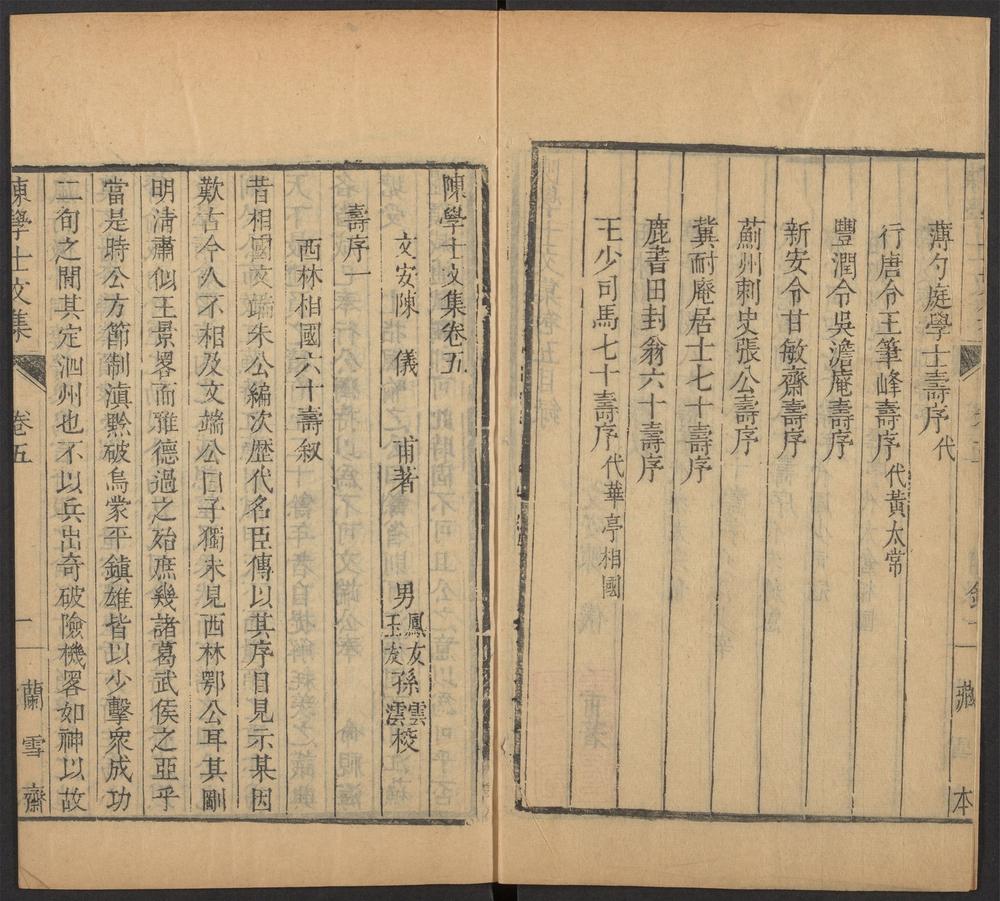 薄勺庭學士壽序代
行唐令王筆峰壽序代黃太常
豐潤令吳澹庵壽序
新安令甘敏齋壽序
薊州刺史張公壽序
冀耐庵居士七十壽序
鹿書田封翁六十壽序
王少司馬七十壽序代華亭相國
陳學士文集卷五
文安陳 儀 甫著 男鳳友玉友孫雲澐校
壽序一
西林相國六十壽叙
昔相國文端朱公編次歷代名臣傳以其序目見示某因
歎古今人不相及文端公曰子獨未見西林鄂公耳其剛
明清肅似王景畧而雅德過之殆庶幾諸葛武侯之亞乎
當是時公方節制滇黔破烏蒙平鎮雄皆以少擊衆成功
二旬之間其定泗州也不以兵出奇破險機畧如神以故
陳學士文集 卷五 一 蘭雪齋